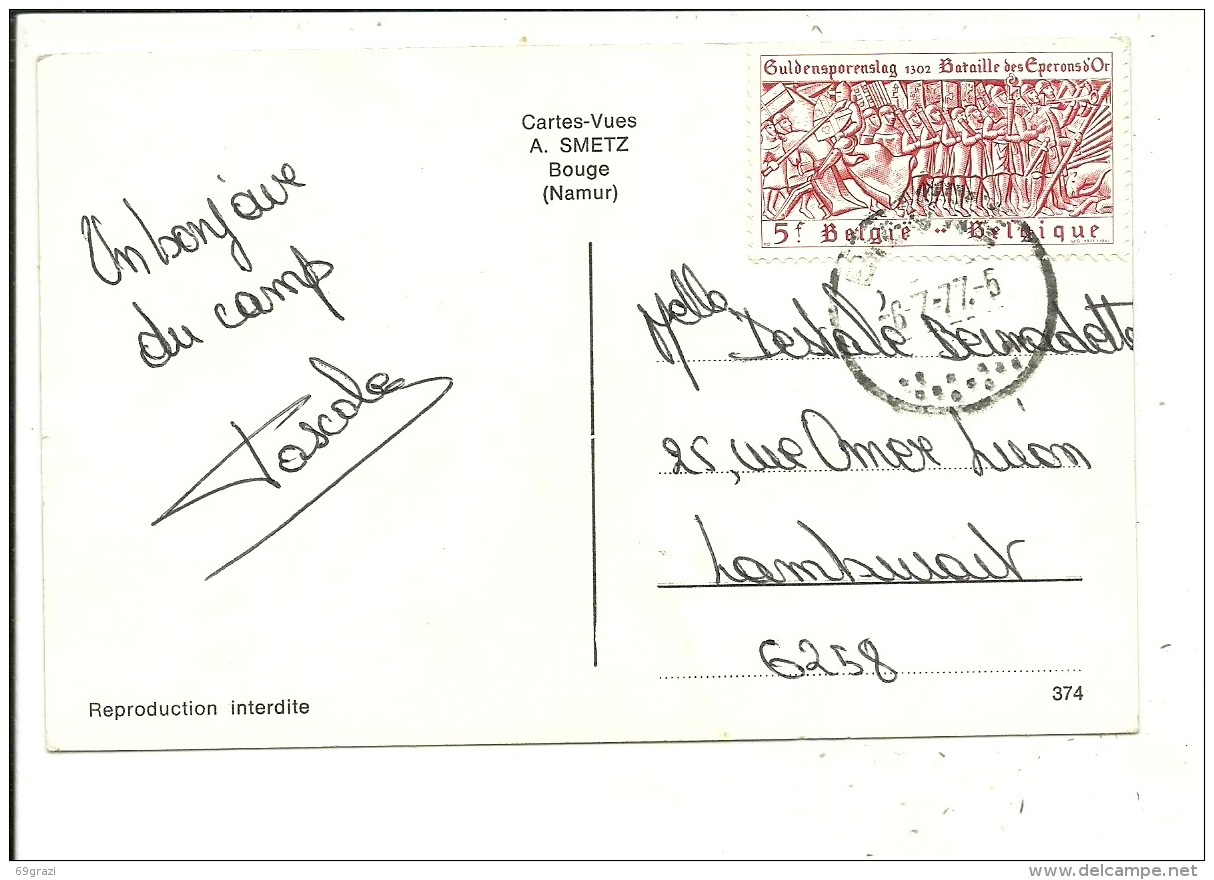 Guldensporenslag 1302 Bataille des Eperons d'Or
5f België - Belgique
Cartes-Vues
A. SMETZ
Bouge
(Namur)
Un bonjour
du camp
Pascale
26-7-77-5
Melle Bernadette
25, rue Omer Lison
Lambusart
6258
Reproduction interdite
374
69grazi
delcampe.net